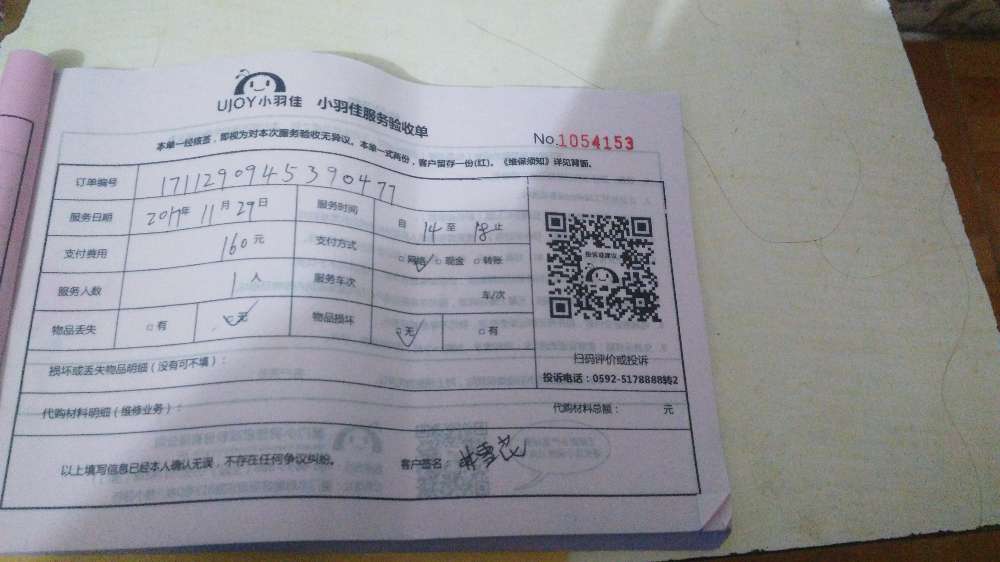 UJOY小羽佳 小羽佳服务验收单
No.1054153
本单一经核签，即视为对本次服务验收无异议。本单一式两份，客户留存一份(红)。《维保须知》详见背面。
订单编号 1711290945390477
服务日期 2017年 11月 29日 服务时间 自 14 至 18 止
支付费用 160元 支付方式 □网络 □现金 □转账
服务人数 1人 服务车次 车/次
物品丢失 □有 □无 物品损坏 □无 □有
投诉或建议
扫码评价或投诉
投诉电话：0592-5178888转2
损坏或丢失物品明细（没有可不填）：
代购材料明细（维修业务）： 代购材料总额： 元
以上填写信息已经本人确认无误，不存在任何争议纠纷。 客户签名： 雪花